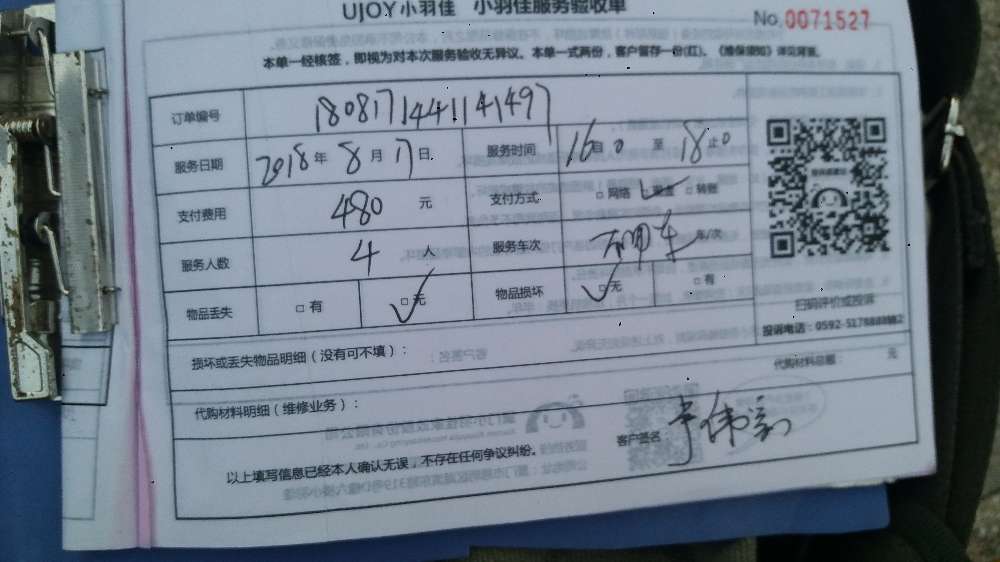 UJOY小羽佳 小羽佳服务验收单
No.0071527
本单一经核签，即视为对本次服务验收无异议。本单一式两份，客户留存一份(红)。《维保须知》详见背面。
订单编号 1808171441141497
服务日期 2018年 8月17日 服务时间 16自0 至 18止0
支付费用 480 元 支付方式 □网络 □现金 □转账
服务人数 4 人 服务车次 车/次
物品丢失 □有 □无 物品损坏 □无 □有
扫码评价或投诉
投诉电话：0592-5178888
损坏或丢失物品明细（没有可不填）：
代购材料总额： 元
代购材料明细（维修业务）：
客户签名
以上填写信息已经本人确认无误，不存在任何争议纠纷。